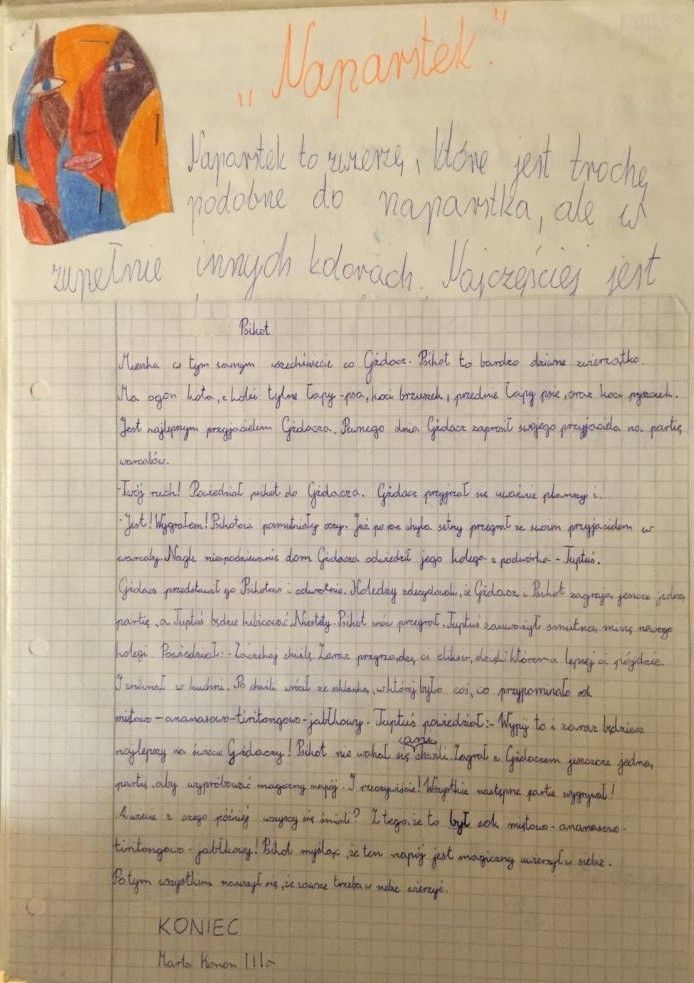 „Naparstek"
Naparstek to zwierzę, które jest trochę
podobne do naparstka, ale w
zupełnie innych kolorach. Najczęściej jest
Psikot
Mieszka w tym samym wszechświecie co Gżdacz. Psikot to bardzo dziwne zwierzątko.
Ma ogon kota, z kolei tylne łapy-psa, koci brzuszek, przednie łapy psie, oraz koci pyszczek.
Jest najlepszym przyjacielem Gżdacza. Pewnego dnia Gżdacz zaprosił swojego przyjaciela na partię
warcabów.
-Twój ruch! Powiedział psikot do Gżdacza. Gżdacz przyjrzał się uważnie planszy i...
-Jest! Wygrałem! Psikotowi posmutniały oczy. Już po raz chyba setny przegrał ze swoim przyjacielem w
warcaby. Nagle niespodziewanie dom Gżdacza odwiedził jego kolega z podwórka - Tuptuś.
Gżdacz przedstawił go Psikotowi i odwrotnie. Koledzy zdecydowali, że Gżdacz i Psikot zagrają jeszcze jedną
partię, a Tuptuś będzie kibicować. Niestety. Psikot znów przegrał. Tuptuś zauważył smutną minę nowego
kolegi. Powiedział: - Zaczekaj chwilę. Zaraz przyrządzę ci eliksir, dzięki któremu lepiej ci pójdzie.
I zniknął w kuchni. Po chwili wrócił ze szklanką, w której było coś, co przypominało sok
miętowo-ananasowo-tiritongowo-jabłkowy. Tuptuś powiedział: - Wypij to i zaraz będziesz
najlepszy na świecie Gżdaczy! Psikot nie wahał się ani chwili. Zagrał z Gżdaczem jeszcze jedną
partię, aby wypróbować magiczny napój. I rzeczywiście! Wszystkie następne partie wygrywał!
A wiecie z czego później wszyscy się śmiali? Z tego, że to był sok miętowo-ananasowo-
tiritongowo-jabłkowy! Psikot myśląc, że ten napój jest magiczny uwierzył w siebie.
Po tym wszystkim nauczył się, że zawsze trzeba w siebie wierzyć.
KONIEC
Marta Konon IIIa